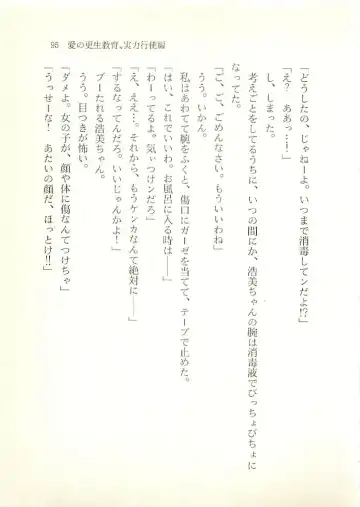 95 愛の更生教育、実力行使編
「どうしたの、じゃねーよ。いつまで消毒してンだよ!?」
「え？　ああっ…！」
し、しまった。
考えごとをしてるうちに、いつの間にか、浩美ちゃんの腕は消毒液でびっちょびちょに
なってた。
「ご、ごめんなさい。もういいわね」
うう。いかん。
私はあわてて腕をふくと、傷口にガーゼを当てて、テープで止めた。
「はい、これでいいわ。お風呂に入る時は――」
「わーってるよ。気ィつけンだろ」
「え、ええ…。それから、もうケンカなんて絶対に――」
「するなってんだろ。いいじゃんかよ！」
ブーたれる浩美ちゃん。
う。目つきが怖い。
「ダメよ。女の子が、顔や体に傷なんてつけちゃ」
「うっせーな！　あたいの顔だ、ほっとけ!!」